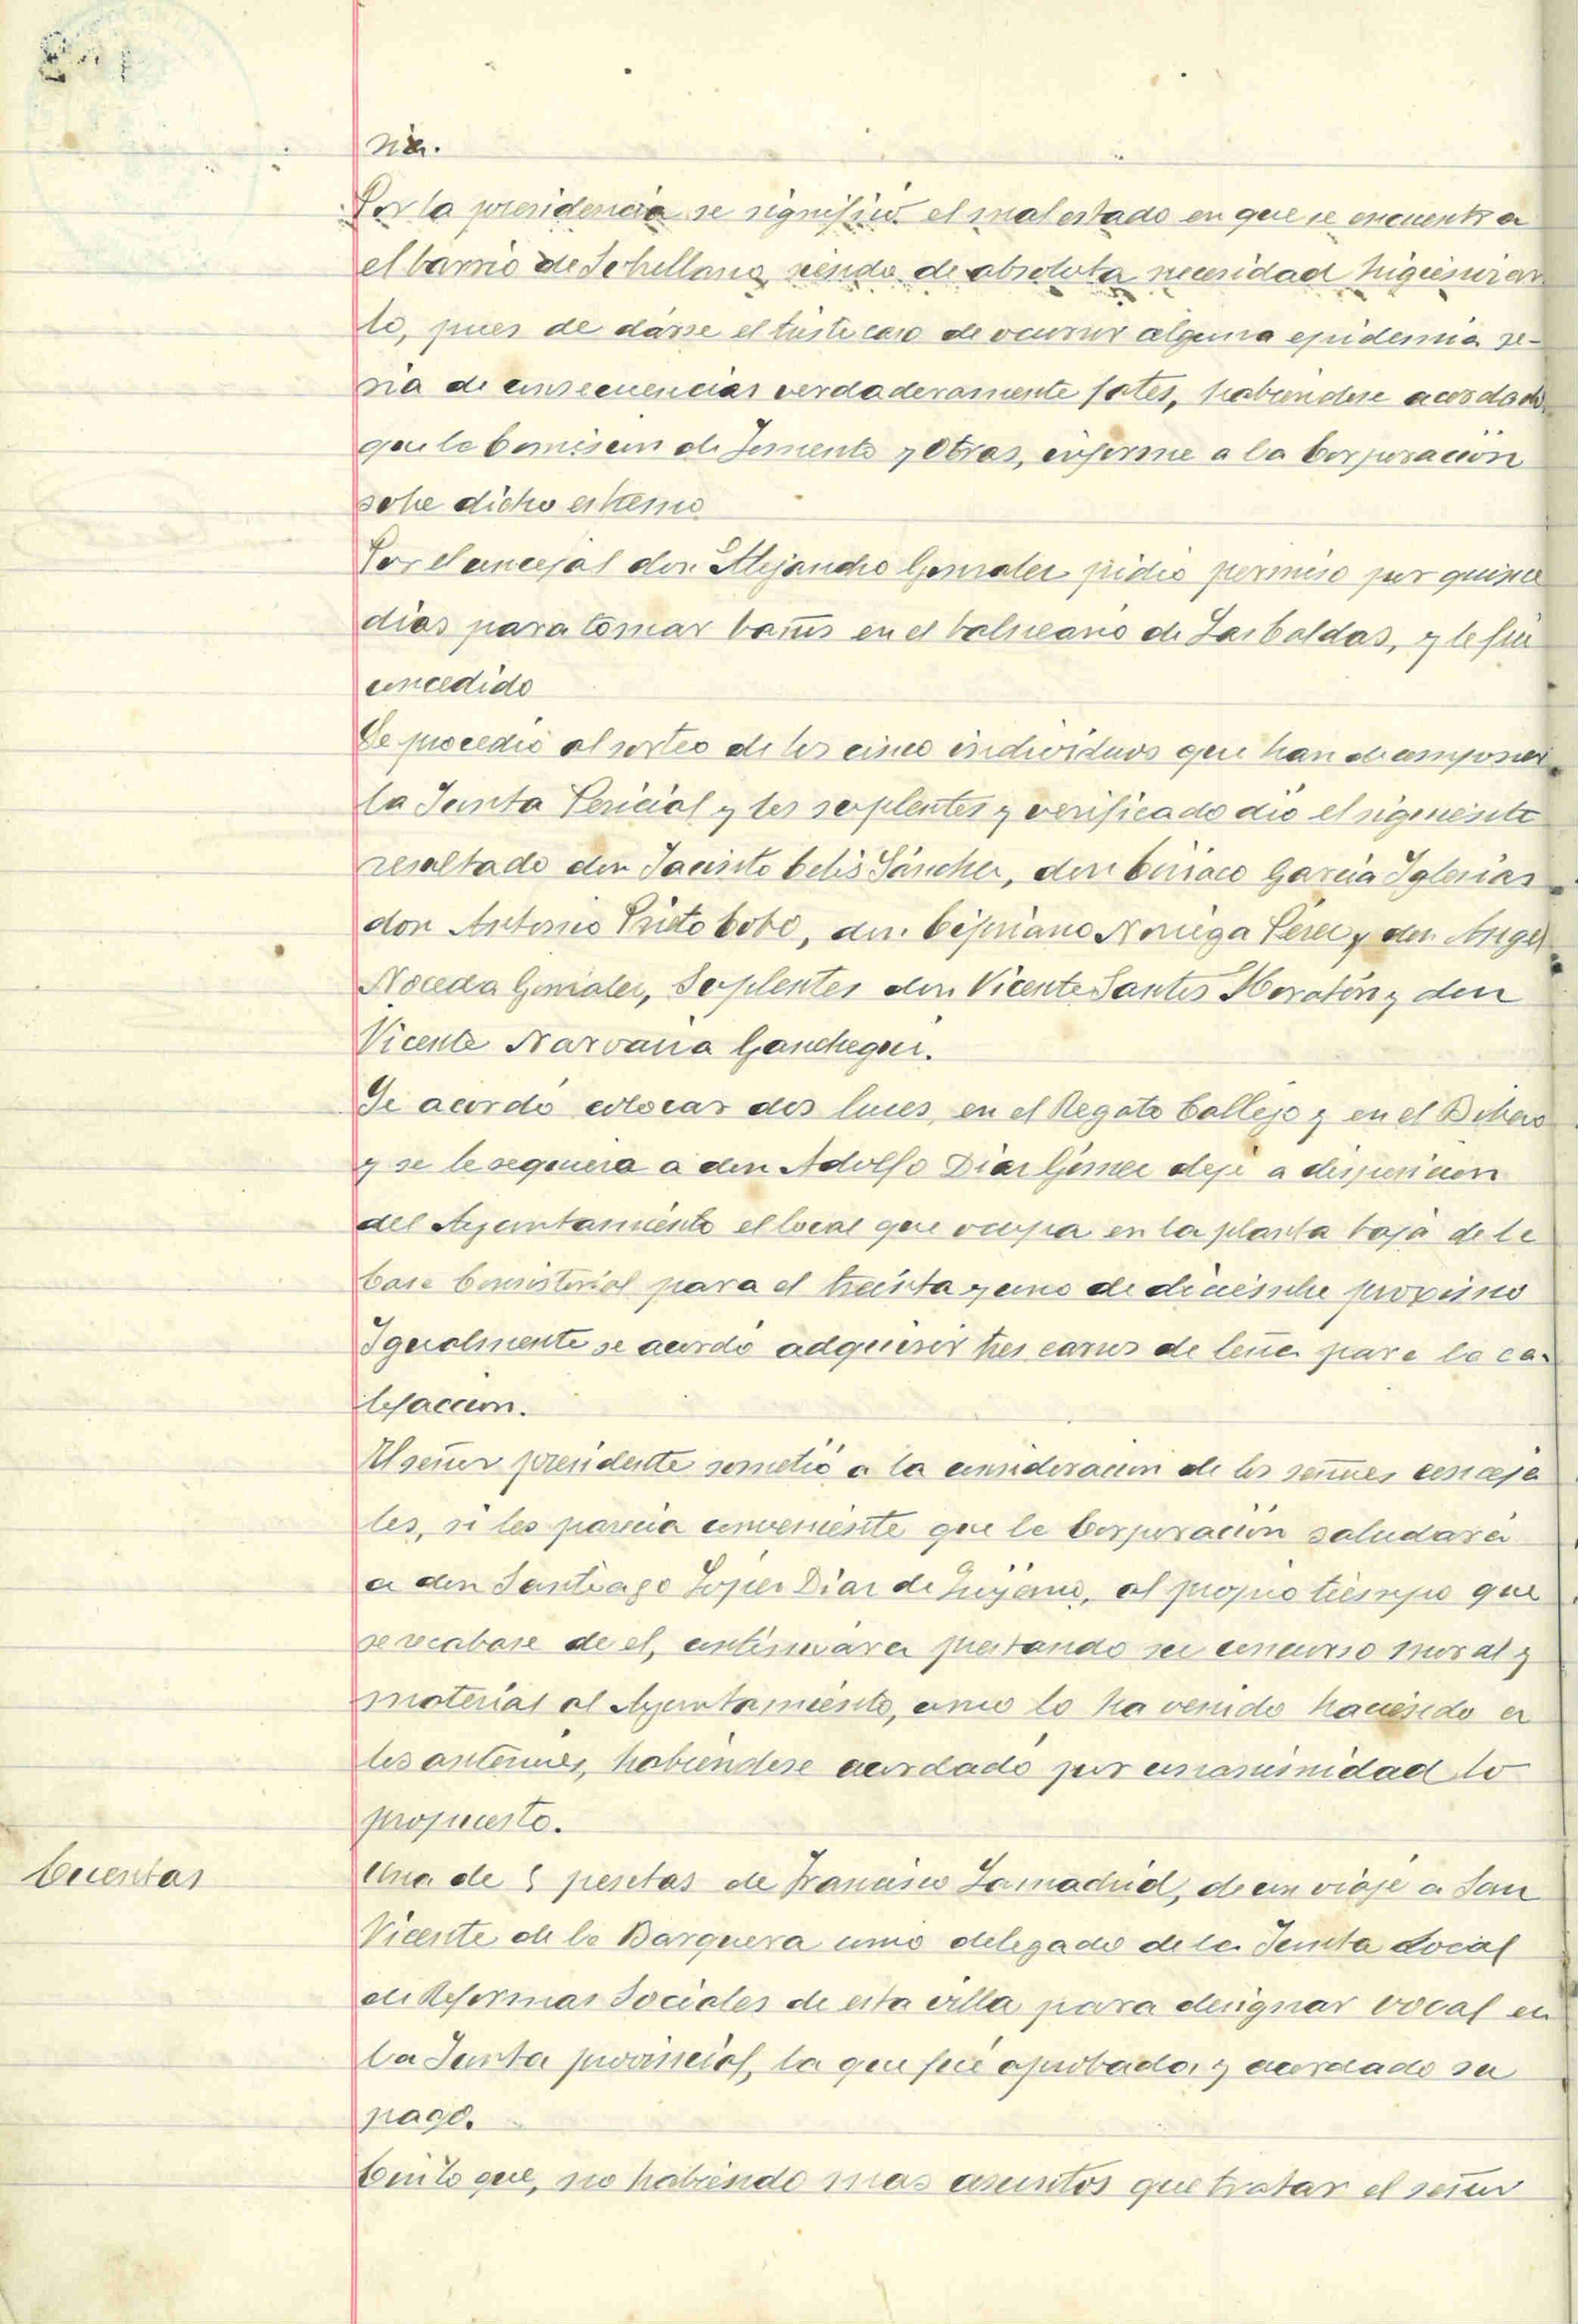 nia.
Por la presidencia se significó el mal estado en que se encuentra
el barrio de Sobellano, siendo de absoluta necesidad higienizar
lo, pues de darse el triste caso de ocurrir alguna epidemia se-
ria de consecuencias verdaderamente fatales, habiendose acordado
que la Comision de Fomento y Obras, informe a la Corporación
sobre dicho extremo
Por el concejal don Alejandro Gonzalez pidió permiso por quince
dias para tomar baños en el balneario de Las Caldas, y le fué
concedido
Se procedió al sorteo de los cinco individuos que han de componer
la Junta Pericial y los suplentes y verificado dio el siguiente
resultado don Jacinto Celis Sánchez, don Ciriaco Garcia Iglesias
don Antonio Prieto Cobo, don Cipriano Noriega Pérez y don Angel
Noceda Gonzalez, Suplentes don Vicente Santos Moratón y don
Vicente Narvaiza Ganchegui.
Se acordó colocar dos luces, en el Regato Callejo y en el
y se le requiera a don Adolfo Diaz Gómez deje a disposicion
del Ayuntamiento el local que ocupa en la planta baja de la
Casa Consistorial para el treinta y uno de diciembre proximo
Igualmente se acordó adquirir tres carros de leña para la ca-
lefaccion.
El señor presidente sometió a la consideracion de los señores conceja
les, si les parecia conveniente que la Corporación saludara
a don Santiago Lopez Diaz de Quijano, al propio tiempo que
se recabase de el, continuara prestando su concurso moral y
material al Ayuntamiento, como lo ha venido haciendo a
los anteriores, habiendose acordado por unanimidad lo
propuesto.
Cuentas
Una de 5 pesetas de Francisco Lamadrid, de un viaje a San
Vicente de la Barquera como delegado de la Junta Local
de Reformas Sociales de esta villa para designar vocal en
la Junta provincial, la que fué aprobada y acordado su
pago.
Con lo que, no habiendo mas asuntos que tratar el señor